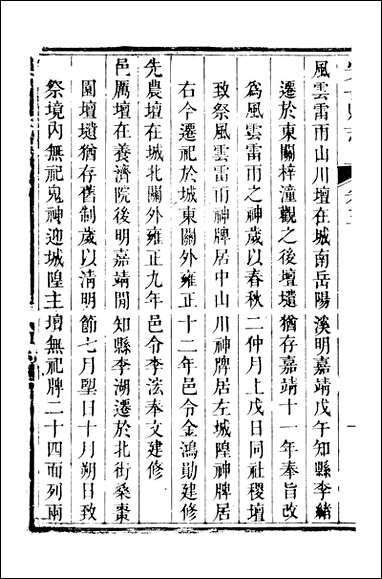 風雲雷雨山川壇在城南岳陽溪明嘉靖戊午知縣李緒
遷於東關梓潼觀之後壇壝猶存嘉靖十一年奉旨改
爲風雲雷雨之神歲以春秋二仲月上戊日同社稷壇
致祭風雲雷雨神牌居中山川神牌居左城隍神牌居
右今遷祀於城東關外雍正十二年邑令金鴻勛建修
先農壇在城北關外雍正九年邑令李浤奉文建修
邑厲壇在養濟院後明嘉靖間知縣李湖遷於北街桑棗
園壇壝猶存舊制歲以淸明節七月朢日十月朔日致
祭境內無祀鬼神迎城隍主壇無祀牌二十四面列兩